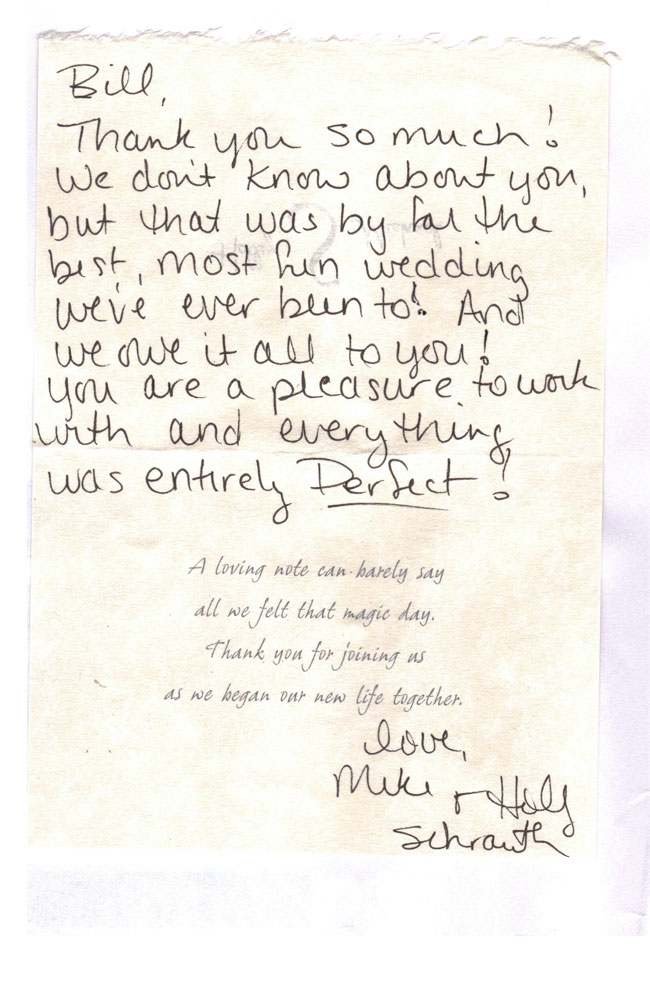 Bill,
Thank you so much!
We don't know about you,
but that was by far the
best, most fun wedding
we've ever been to! And
we owe it all to you!
You are a pleasure to work
with and everything
was entirely Perfect!
A loving note can barely say
all we felt that magic day.
Thank you for joining us
as we began our new life together.
Love,
Mike + Holly
Schrauth